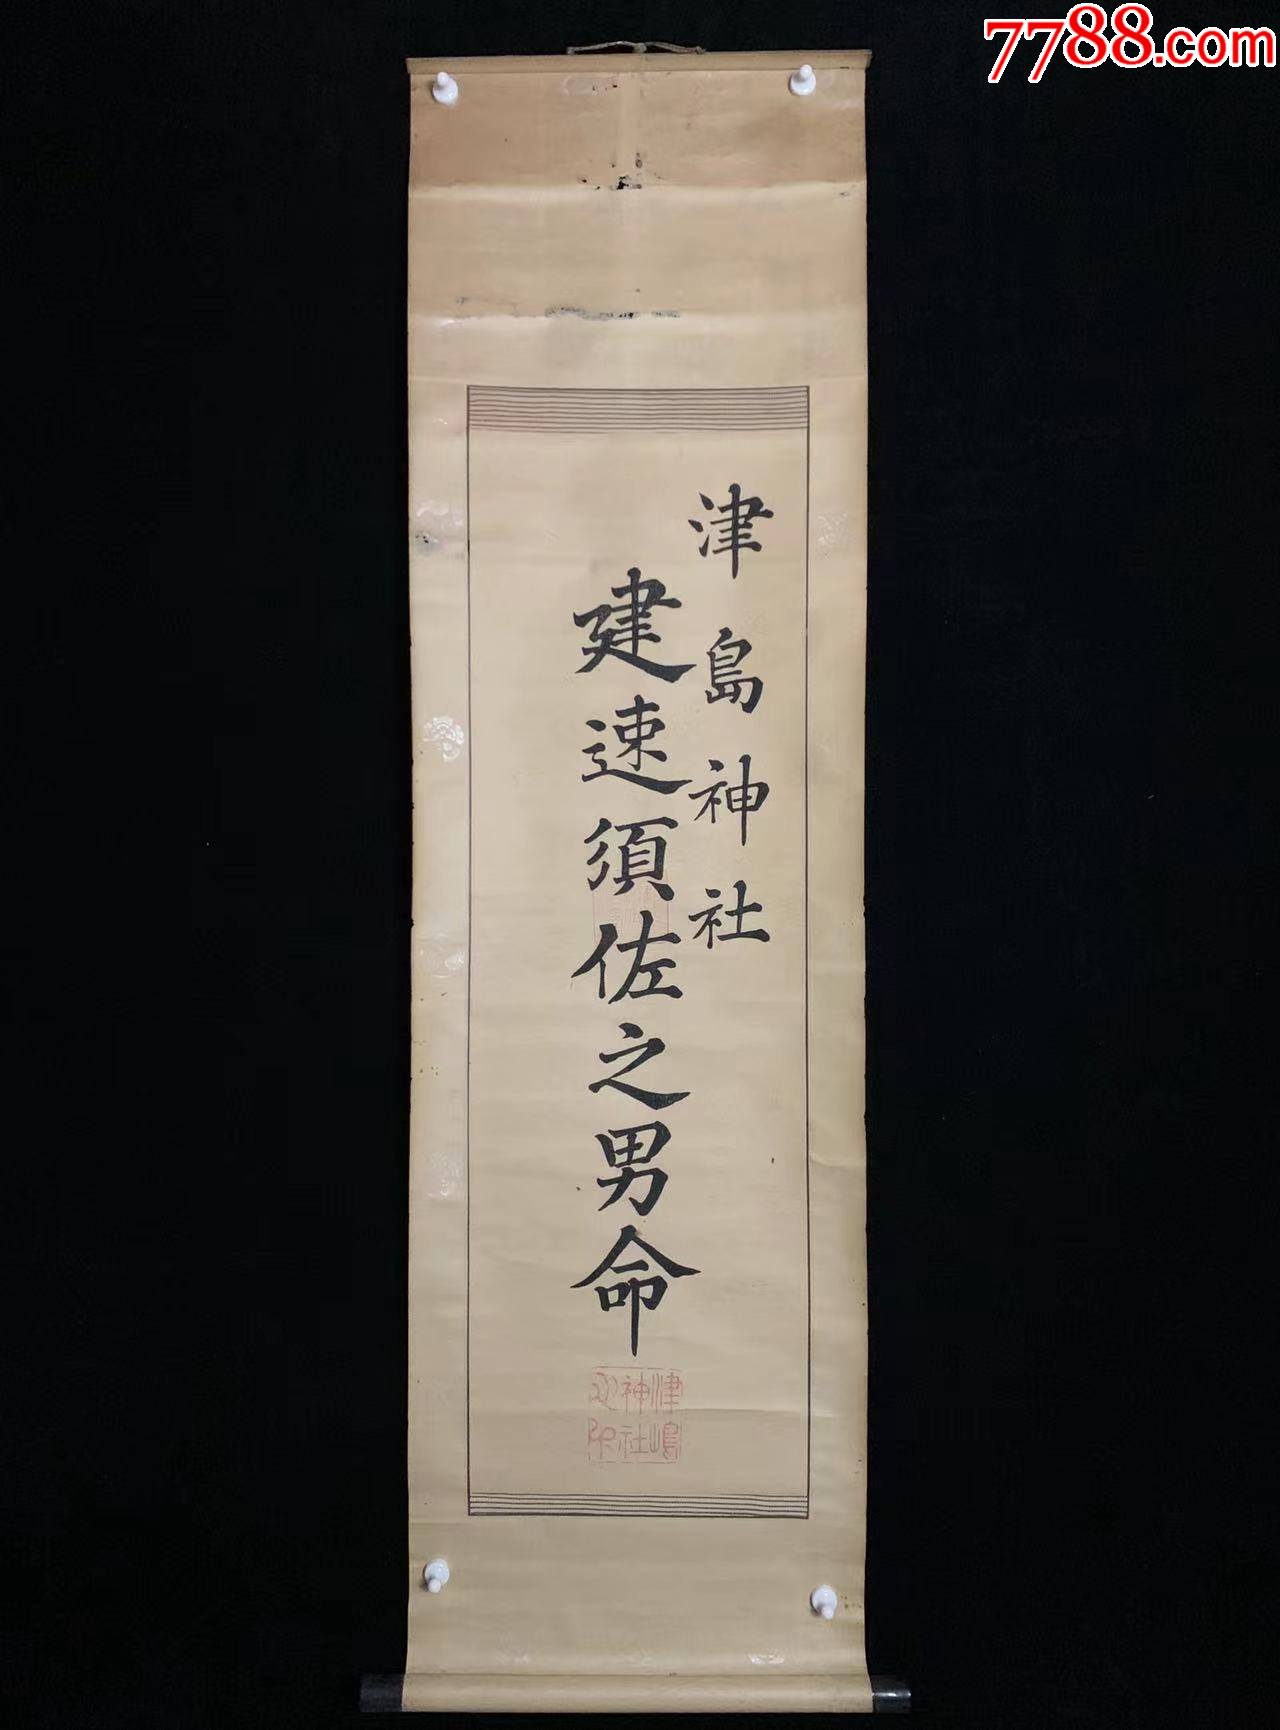 7788.com
津島神社
建速須佐之男命
津嶋
神社
之印